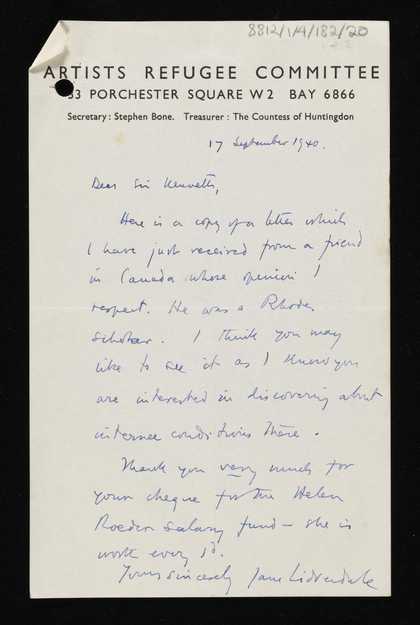 8812/1/4/182/20
ARTISTS REFUGEE COMMITTEE
33 PORCHESTER SQUARE W2 BAY 6866
Secretary: Stephen Bone. Treasurer: The Countess of Huntingdon
17 September 1940.
Dear Sir Kenneth,
Here is a copy of a letter which
I have just received from a friend
in Canada whose opinion I
respect. He was a Rhodes
scholar. I think you may
like to see it as I know you
are interested in discovering about
internee conditions there.
Thank you very much for
your cheque for the Helen
Roeder salary fund – she is
worth every 1d.
Yours sincerely Jane Lidderdale